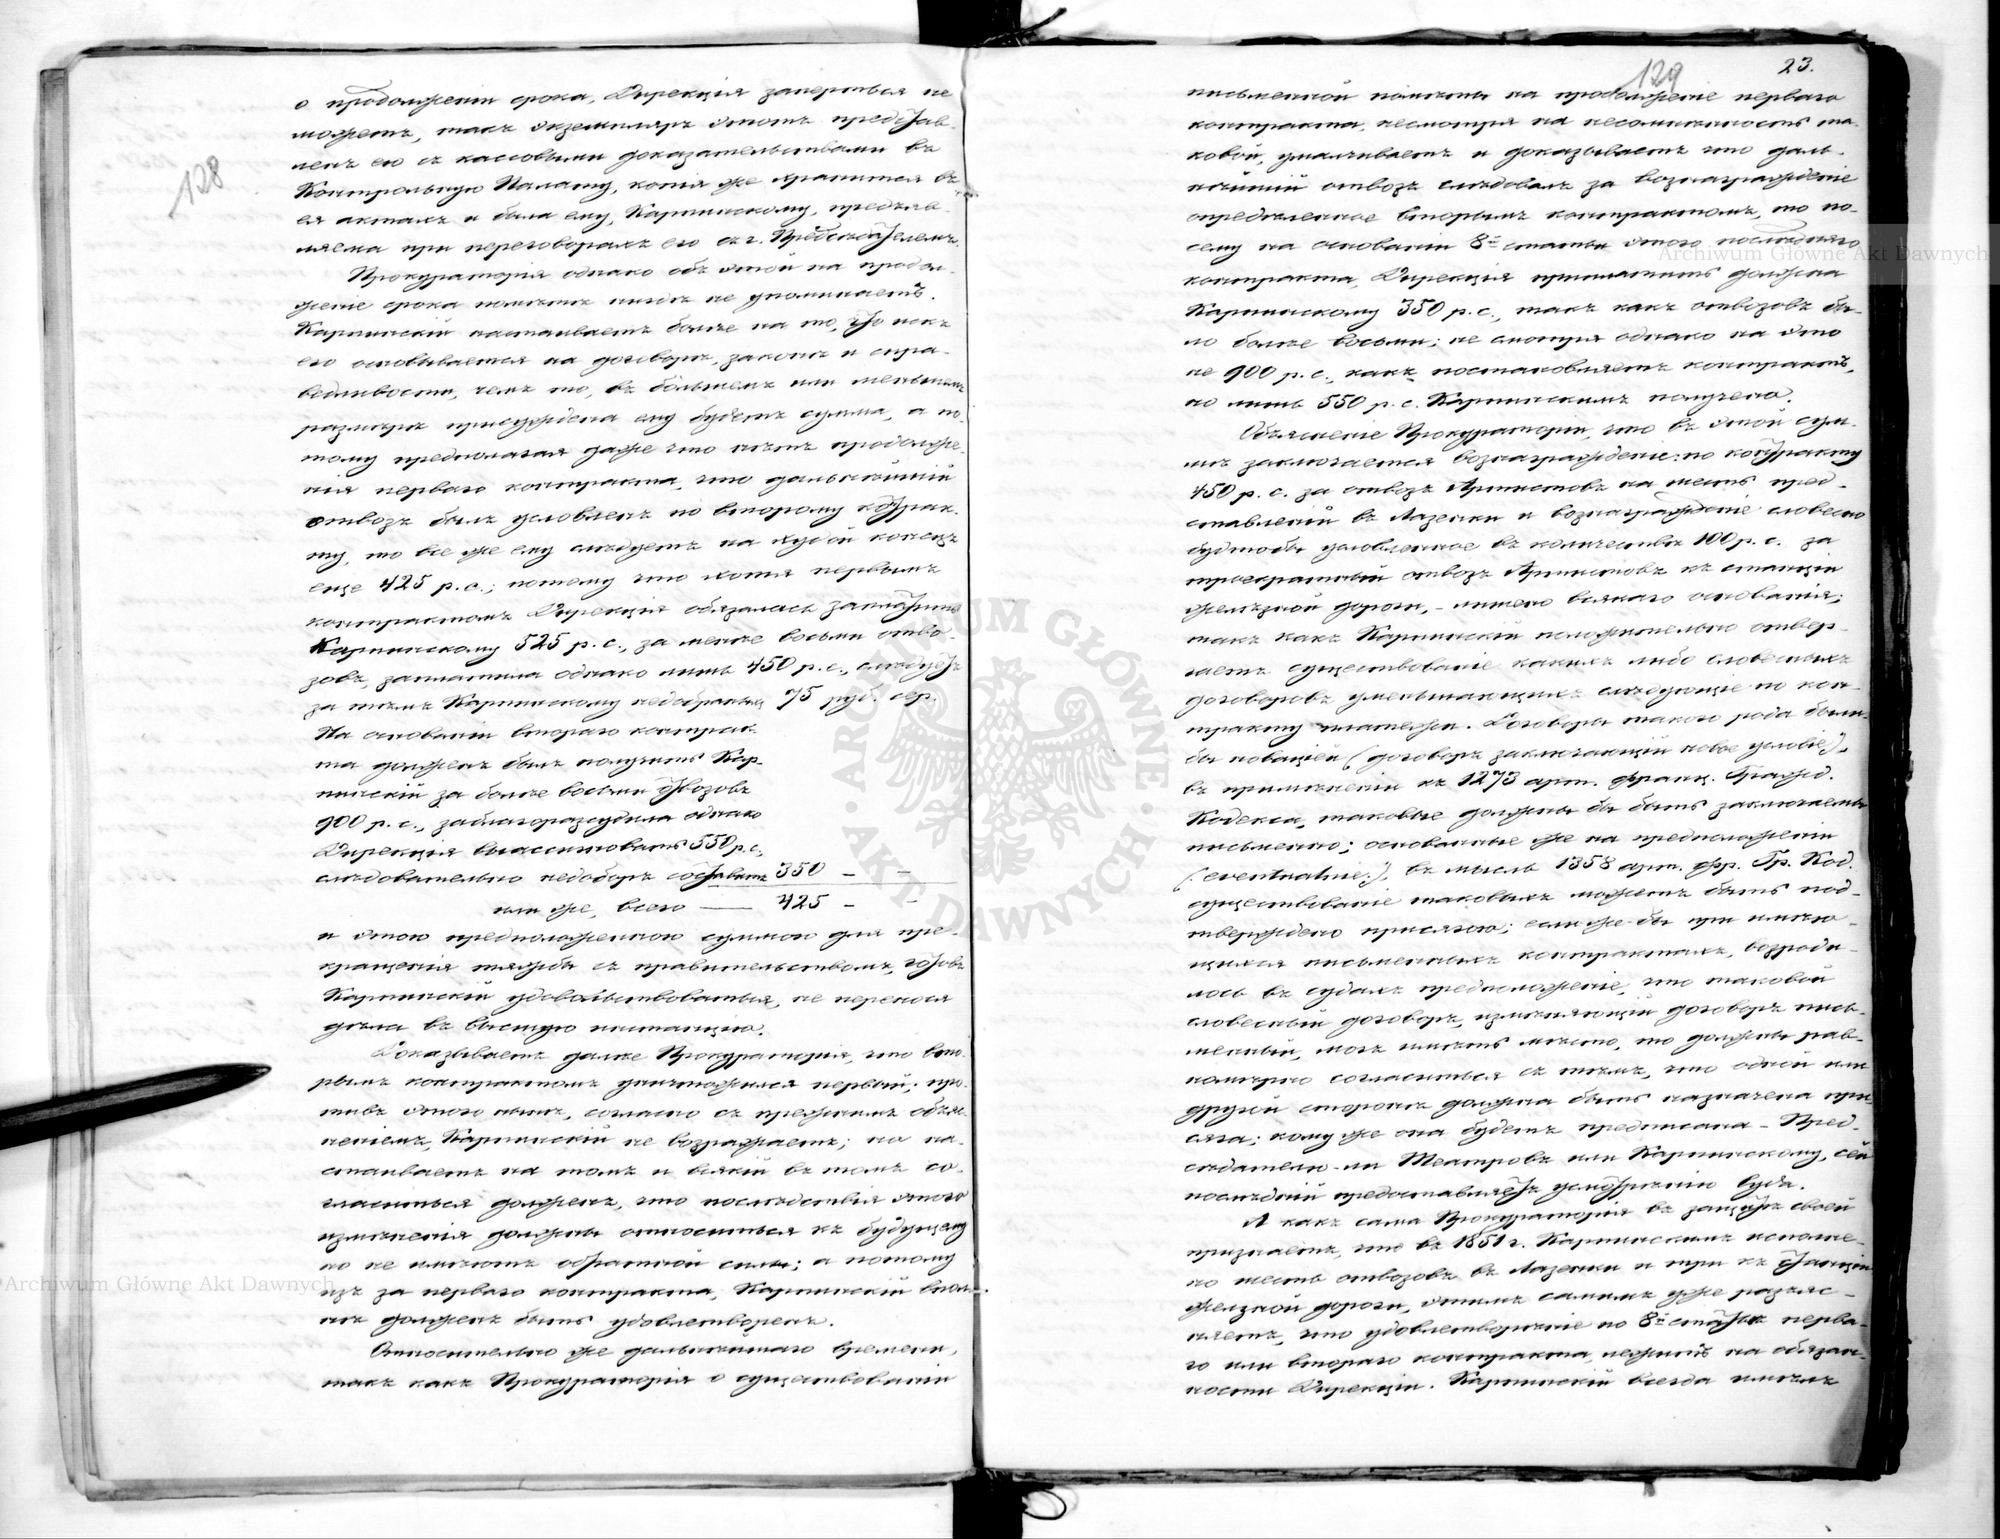 128
о продолженіи срока, Дирекція запереться не
можетъ, такъ экземпляръ этотъ представ-
ленъ ею съ кассовыми доказательствами въ
Контрольную Палату, копія же хранится въ
ея актахъ и была ему, Карпинскому, предъяв-
ляема при переговорахъ его съ г. Предсѣдателемъ.
Прокураторія однако объ этой на продол-
женіе срока помѣткѣ нигдѣ не упоминаетъ.
Карпинскій настаиваетъ болѣе на то, что искъ
его основывается на договорѣ, законѣ и спра-
ведливости, чемъ то, въ большемъ или меньшемъ
размѣрѣ присуждена ему будетъ сумма, а по-
тому предполагая даже что нѣтъ продолже-
нія перваго контракта, что дальнѣйшій
отвозъ былъ условленъ по второму контрак-
ту, то все же ему слѣдуетъ на худой конецъ
еще 425 р. с.; потому что хотя первымъ
контрактомъ Дирекція обязалась заплатить
Карпинскому 525 р. с., за менѣе восьми отво-
зовъ, заплатила однако лишь 450 р. с., слѣдуетъ
за тѣмъ Карпинскому недобранныхъ 75 руб. сер.
На основаніи втораго контрак-
та долженъ былъ получить Кар-
пинскій за болѣе восьми отвозовъ
900 р. с., заблагоразсудила однако
Дирекція выассигновать 550 р. с.,
слѣдовательно недоборъ составитъ 350 – –
или же, всего — 425 – –
и этою предположенною суммою для пре-
кращенія тяжбы съ правительствомъ, готовъ
Карпинскій удовольствоваться, не перенося
дѣла въ высшую инстанцію.
Доказываетъ далѣе Прокураторія, что вто-
рымъ контрактомъ уничтожился первый; про-
тивъ этого нынѣ, согласно съ прежнимъ объяс-
неніемъ, Карпинскій не возражаетъ; но на-
стаиваетъ на томъ и всякій въ томъ со-
гласиться долженъ, что послѣдствія этого
измѣненія должны относиться къ будущему
но не имѣютъ обратной силы; а потому
изъ за перваго контракта, Карпинскій впол-
нѣ долженъ быть удовлетворенъ.
Относительно же дальнѣйшаго времени,
такъ какъ Прокураторія о существованіи
129
23.
письменной помѣтки на продолженіе перваго
контракта, несмотря на несомнѣнность та-
ковой, умалчиваетъ и доказываетъ что даль-
нѣйшій отвозъ слѣдовалъ за вознагражденіе
опредѣленное вторымъ контрактомъ, то по-
сему на основаніи 8й статьи этого послѣдняго
контракта, Дирекція приплатить должна
Карпинскому 350 р. с., такъ какъ отвозовъ бы-
ло болѣе восьми; не смотря однако на это
не 900 р. с., какъ постановляетъ контрактъ,
но лишь 550 р. с. Карпинскимъ получено.
Объясненіе Прокураторіи, что въ этой сум-
мѣ заключается вознагражденіе: по контракту
450 р. с. за отвозъ Артистовъ на шесть пред-
ставленій въ Лазенки и вознагражденіе словесно
будтобы условленное въ количествѣ 100 р. с. за
троекратный отвозъ Артистовъ къ станціи
желѣзной дороги, – лишено всякаго основанія;
такъ какъ Карпинскій положительно отвер-
гаетъ существованіе какихъ либо словесныхъ
договоровъ уменьшающихъ слѣдующіе по кон-
тракту платежи. Договоры такого рода были-
бы новаціей (договоръ заключающій новое условіе),
въ примѣненіи къ 1273 арт. Франц. Гражд.
Кодекса, таковые должны бы быть заключаемы
письменно; основанные же на предположеніи
(eventualnie), въ мысль 1358 арт. фр. Гр. Код.
существованіе таковыхъ можетъ быть под-
тверждено присягою; если же бы при имѣю-
щихся письменныхъ контрактахъ, возроди-
лось въ судахъ предположеніе, что таковой
словесный договоръ, измѣняющій договоръ пись-
менный, могъ имѣть мѣсто, то должны рав-
номѣрно согласиться съ тѣмъ, что одной или
другой сторонѣ должна быть назначена при-
сяга; кому же она будетъ предписана – Пред-
сѣдателю-ли Театровъ или Карпинскому, сей
послѣдній предоставляетъ усмотрѣнію Суда.
А какъ сама Прокураторія въ защитѣ своей
признаетъ, что въ 1851 г. Карпинскимъ исполне-
но шесть отвозовъ въ Лазенки и три къ станціи
желѣзной дороги, этимъ самымъ уже разъяс-
няетъ, что удовлетвореніе по 8й статьѣ перва-
го или втораго контракта, лежитъ на обязан-
ности Дирекціи. Карпинскій всегда имѣлъ